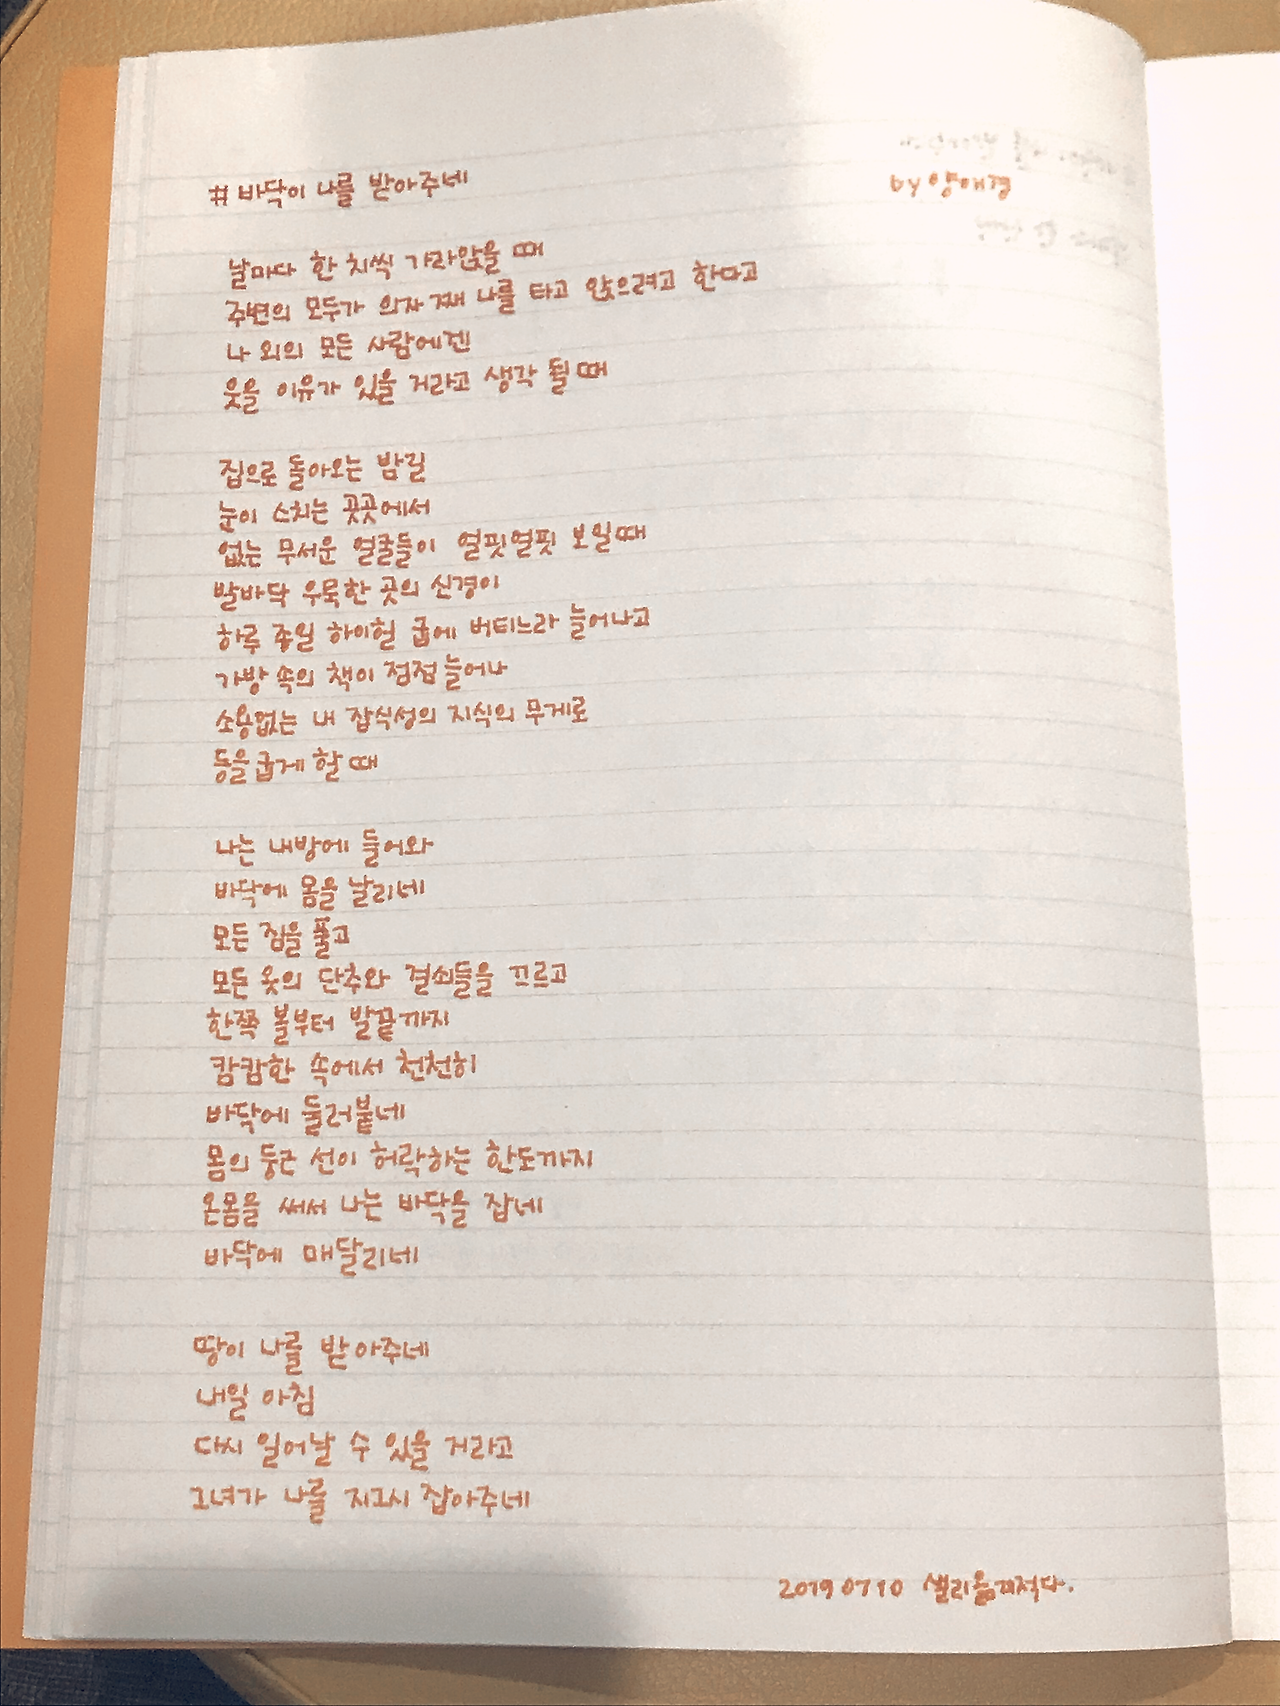 # 바닥이 나를 받아주네
by 양애경
날마다 한 치씩 가라앉을 때
주변의 모두가 의자째 나를 타고 앉으려고 한다고
나 외의 모든 사람에겐
웃을 이유가 있을 거라고 생각 될 때
집으로 돌아오는 밤길
눈이 스치는 곳곳에서
없는 무서운 얼굴들이 얼핏얼핏 보일 때
발바닥 우묵한 곳의 신경이
하루 종일 하이힐 굽에 버티느라 늘어나고
가방 속의 책이 점점 늘어나
소용없는 내 잡식성의 지식의 무게로
등을 굽게 할 때
나는 내방에 들어와
바닥에 몸을 날리네
모든 짐을 풀고
모든 옷의 단추와 걸쇠들을 끄르고
한쪽 볼부터 발끝까지
캄캄한 속에서 천천히
바닥에 들러붙네
몸의 둥근 선이 허락하는 한도까지
온몸을 써서 나는 바닥을 잡네
바닥에 매달리네
땅이 나를 받아주네
내일 아침
다시 일어날 수 있을 거라고
그녀가 나를 지그시 잡아주네
20190710 샐리옮겨적다.